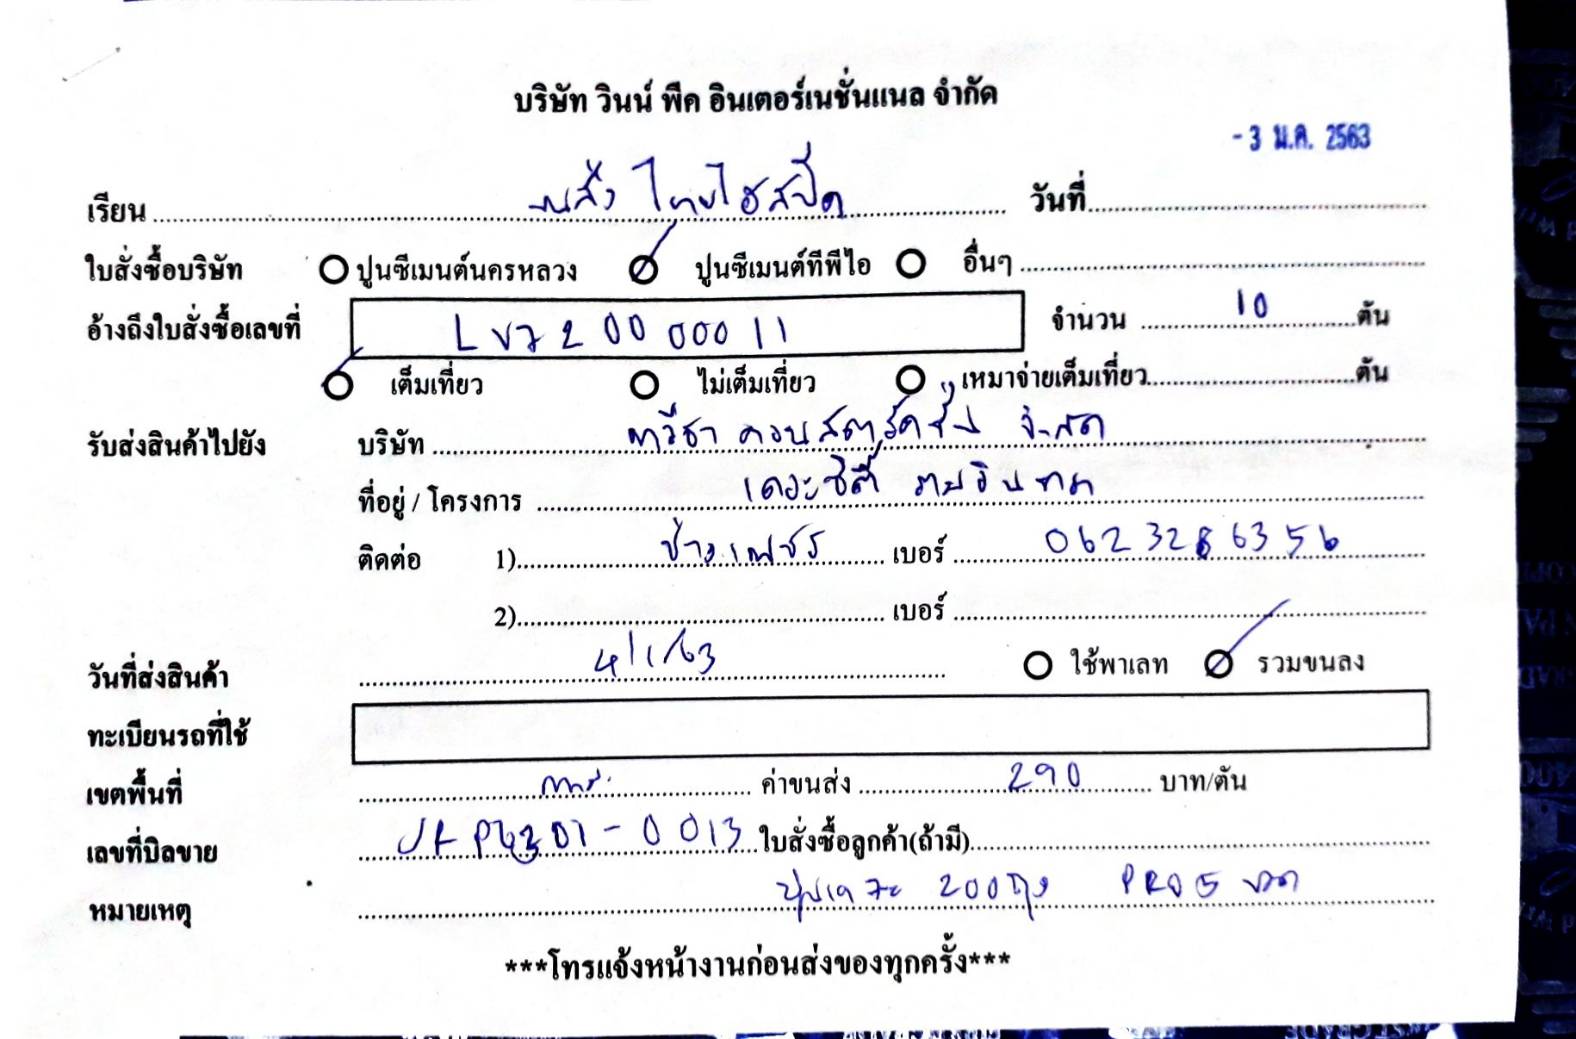 บริษัท วินน์ พีค อินเตอร์เนชั่นแนล จำกัด
- 3 ม.ค. 2563
เรียน ขนส่ง ไทยไฮสปีด วันที่
ใบสั่งซื้อบริษัท ปูนซีเมนต์นครหลวง ปูนซีเมนต์ทีพีไอ อื่นๆ
อ้างถึงใบสั่งซื้อเลขที่ LV720000011 จำนวน 10 ตัน
เต็มเที่ยว ไม่เต็มเที่ยว เหมาจ่ายเต็มเที่ยว ตัน
รับส่งสินค้าไปยัง บริษัท คอนสตรัคชั่น จำกัด
ที่อยู่ / โครงการ เดอะซิตี้ รามอินทรา
ติดต่อ 1) ช่างเพชร เบอร์ 0623286356
2) เบอร์
วันที่ส่งสินค้า 4/1/63 ใช้พาเลท รวมขนลง
ทะเบียนรถที่ใช้
เขตพื้นที่ ค่าขนส่ง 290 บาท/ตัน
เลขที่บิลขาย ใบสั่งซื้อลูกค้า(ถ้ามี)
หมายเหตุ 200 ถุง
***โทรแจ้งหน้างานก่อนส่งของทุกครั้ง***